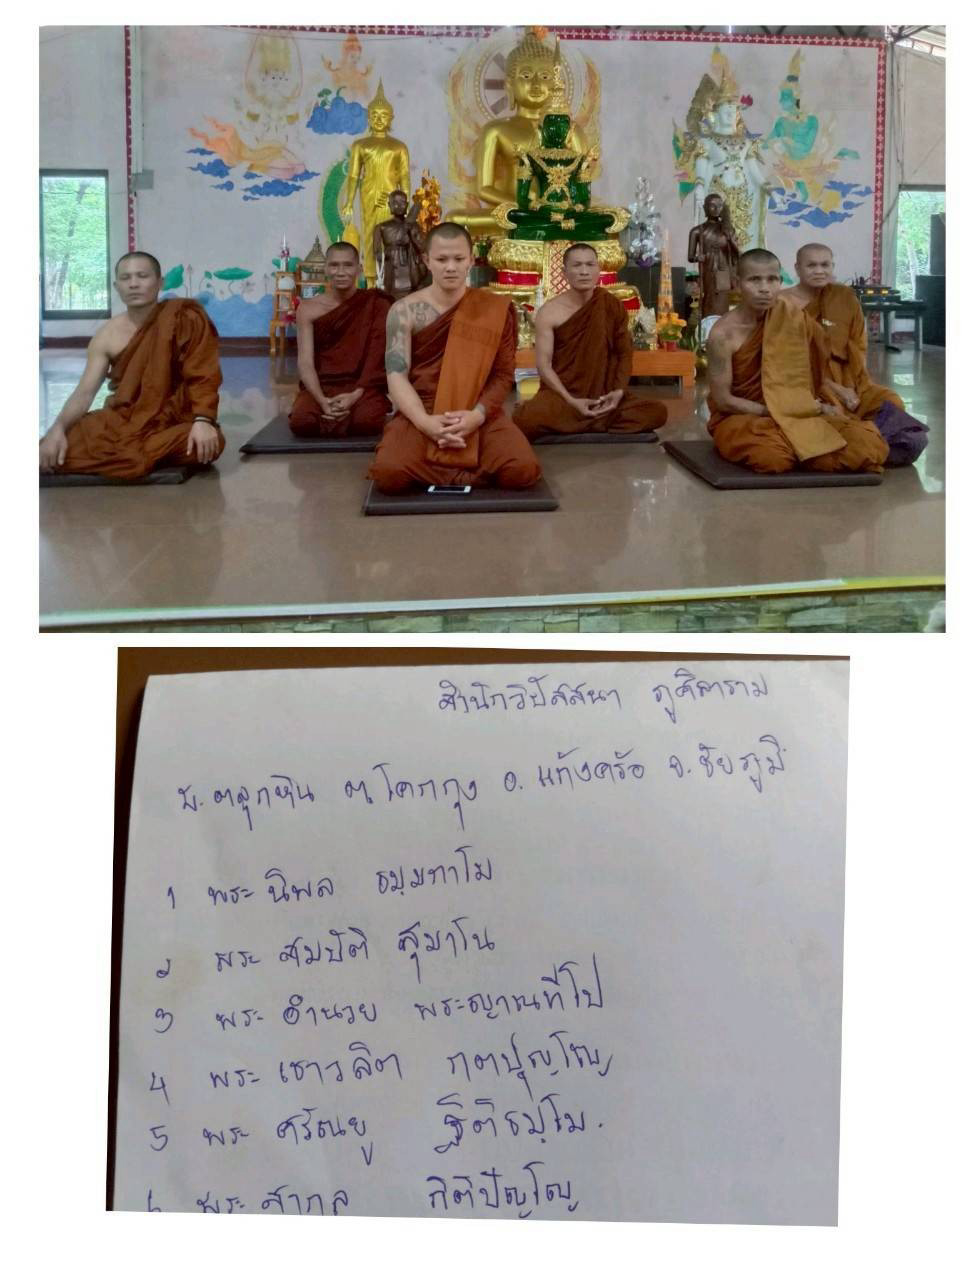 สำนักวิปัสสนา ภูศิลาราม
บ. ตลุกหิน ต. โคกกุง อ. แก้งคร้อ จ. ชัยภูมิ
1 พระ นิพล ธมฺมกาโม
2 พระ สมบัติ สุมาโน
3 พระ อำนวย พระญาณทีโป
4 พระ เชาวลิต กตปุญฺโญ
5 พระ ศรัณยู ฐิติธมฺโม.
6 พระ สากล กิตติปัญโญ